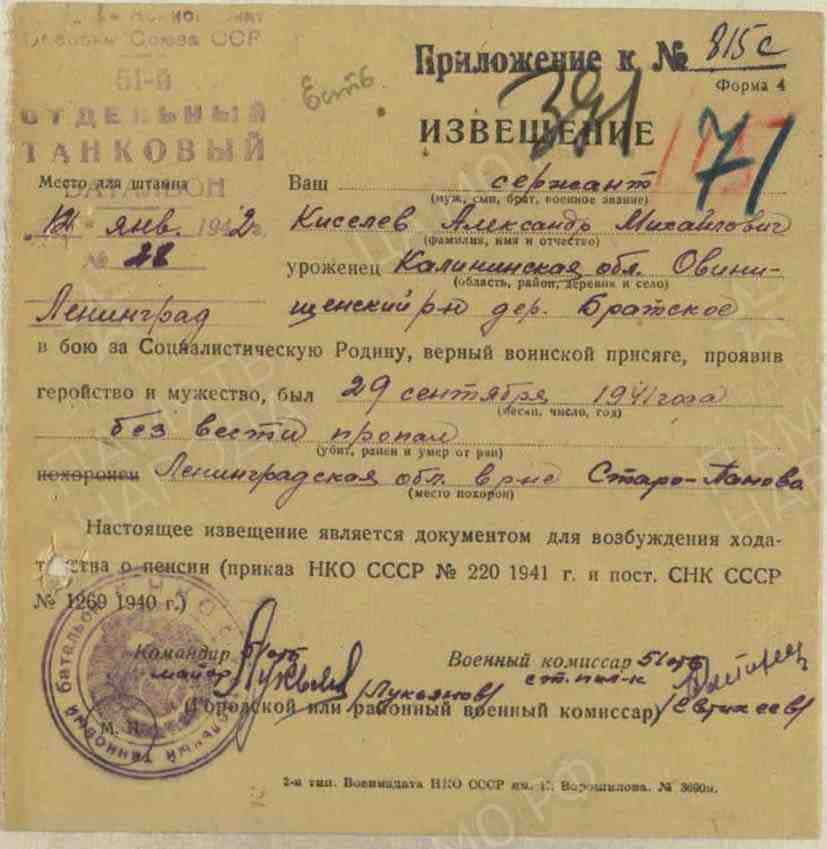 Союза ССР
51-й
ОТДЕЛЬНЫЙ
ТАНКОВЫЙ
БАТАЛЬОН
Место для штампа
12 янв. 1942 г.
№ 28
Ленинград
есть
Приложение к № 815с
Форма 4
391
71
ИЗВЕЩЕНИЕ
Ваш сержант
(муж, сын, брат, военное звание)
Киселев Александр Михайлович
(фамилия, имя и отчество)
уроженец Калининская обл. Овини-
(область, район, деревня и село)
щенский р-н дер. Братское
в бою за Социалистическую Родину, верный воинской присяге, проявив
геройство и мужество, был 29 сентября 1941 года
(месяц, число, год)
без вести пропал
(убит, ранен и умер от ран)
похоронен Ленинградская обл. в р-не Старо-Панова
(место похорон)
Настоящее извещение является документом для возбуждения хода-
тайства о пенсии (приказ НКО СССР № 220 1941 г. и пост. СНК СССР
№ 1269 1940 г.)
Командир 51 отб
майор /Лукьянов/
Военный комиссар 51 отб
ст. пол-к
(Городской или районный военный комиссар)
М. П.
танковый батальон
2-я тип. Воениздата НКО СССР им. К. Ворошилова. №
ПАМЯТЬ НАРОДА
ЦАМО РФ